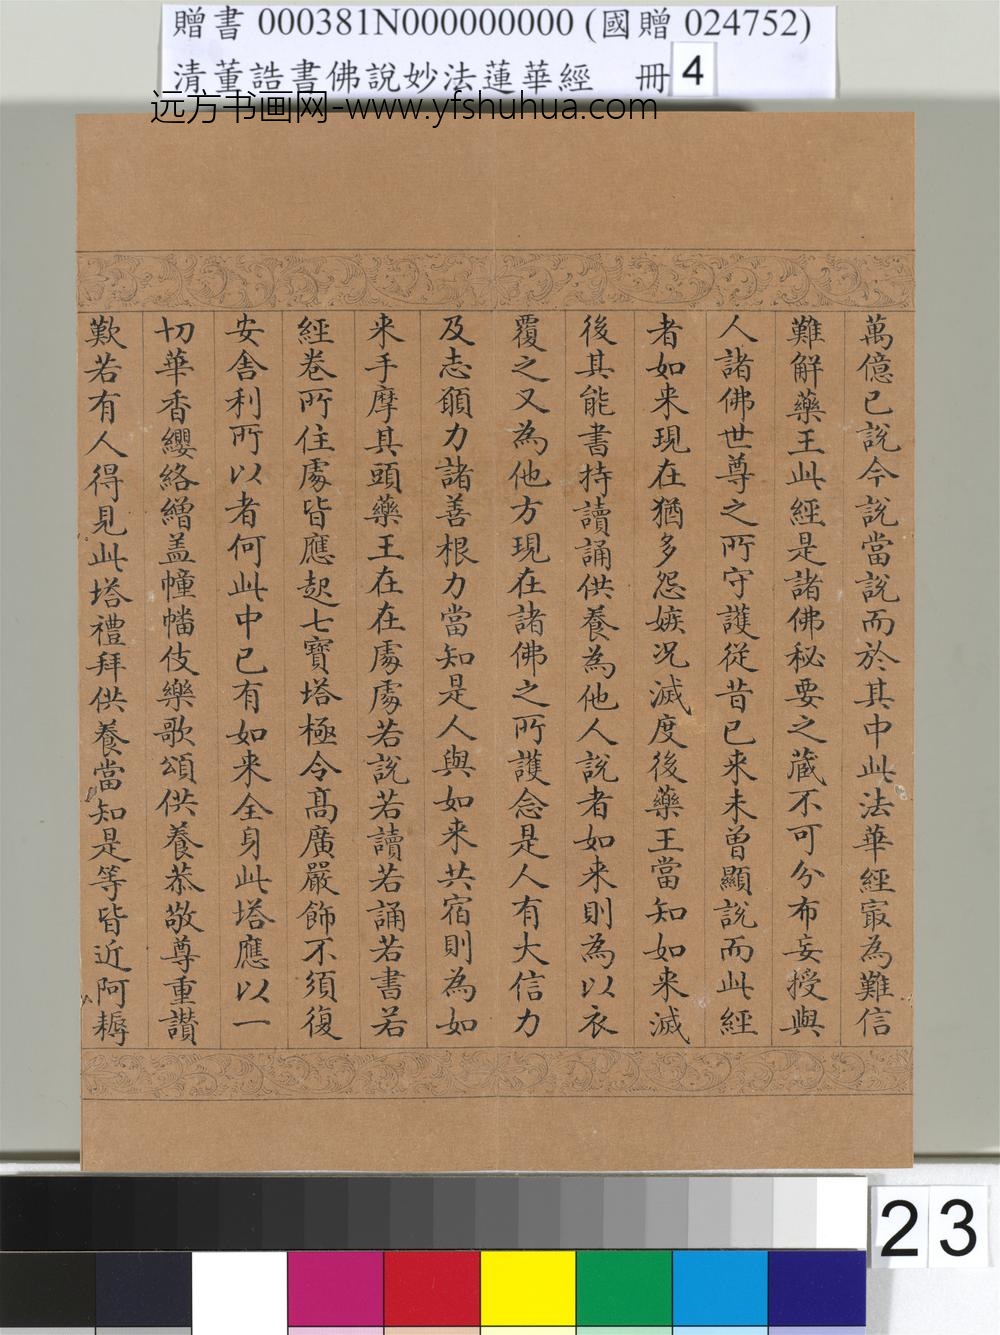 贈書 000381N000000000 (國贈 024752)
清董誥書佛說妙法蓮華經 冊 4
远方书画网-www.yfshuhua.com
萬億已說今說當說而於其中此法華經㝡為難信
難解藥王此經是諸佛秘要之蔵不可分布妄授與
人諸佛世尊之所守護從昔已来未曾顯說而此經
者如来現在猶多怨嫉况滅度後藥王當知如来滅
後其能書持讀誦供養為他人說者如来則為以衣
覆之又為他方現在諸佛之所護念是人有大信力
及志願力諸善根力當知是人與如来共宿則為如
来手摩其頭藥王在在處處若說若讀若誦若書若
經卷所住處皆應起七寶塔極令髙廣嚴飾不須復
安舎利所以者何此中已有如来全身此塔應以一
切華香纓絡繒盖幢幡伎樂歌頌供養恭敬尊重讃
歎若有人得見此塔禮拜供養當知是等皆近阿耨
23